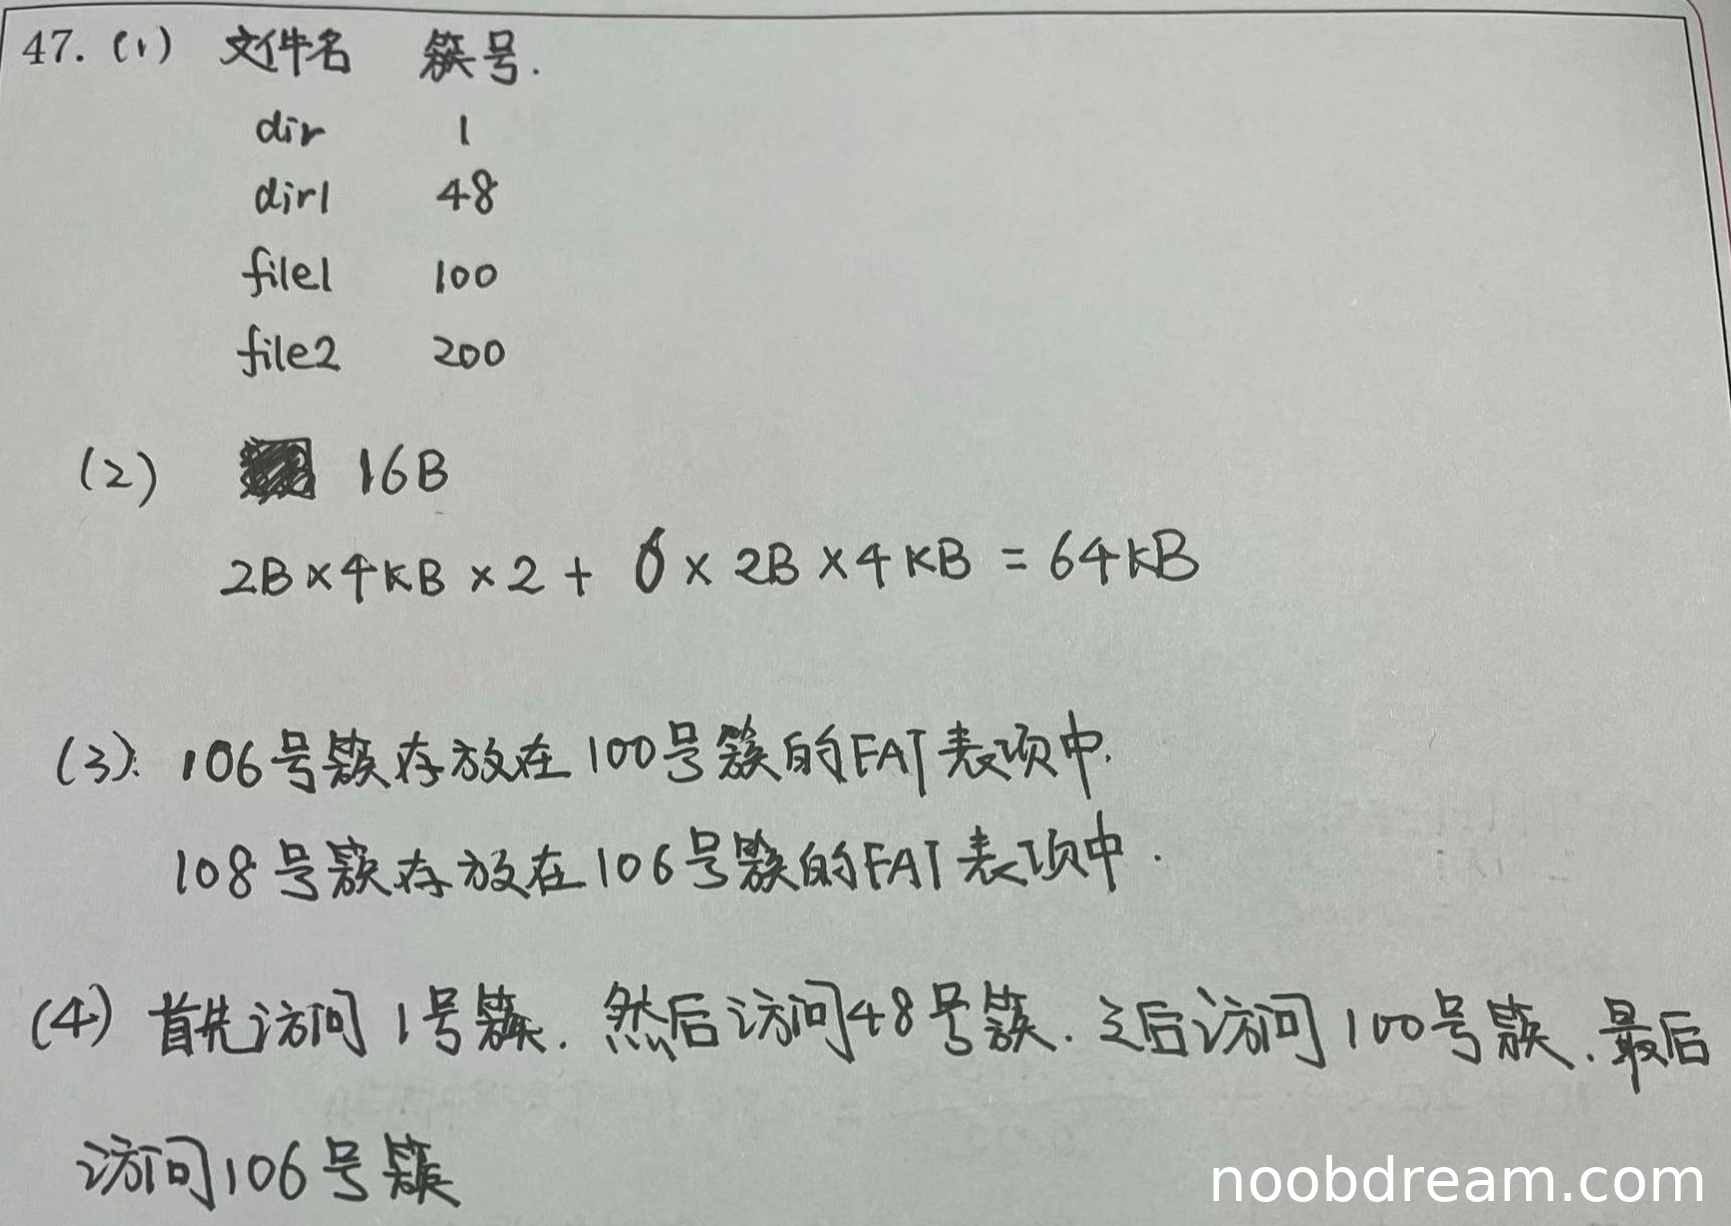 47. (1) 文件名 簇号.
dir 1
dir1 48
file1 100
file2 200
(2) 16B
2B×4KB×2+6×2B×4KB=64KB
(3): 106号簇存放在100号簇的FAT表项中.
108号簇存放在106号簇的FAT表项中.
(4) 首先访问1号簇. 然后访问48号簇. 之后访问100号簇. 最后
访问106号簇
noobdream.com